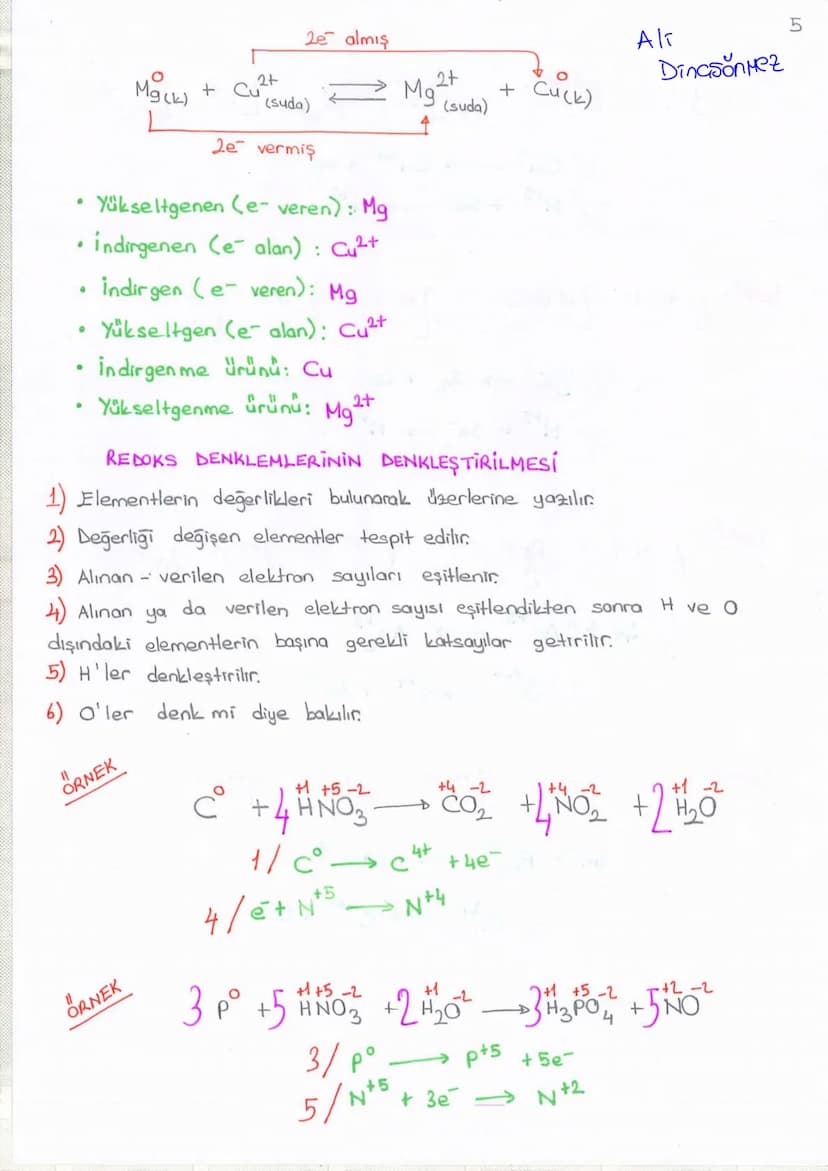 5
Ali
Dinçsönmez
2e⁻ almış
Mg⁰(k) + Cu²⁺(suda) ⇌ Mg²⁺(suda) + Cu⁰(k)
2e⁻ vermiş
• Yükseltgenen (e⁻ veren): Mg
• İndirgenen (e⁻ alan) : Cu²⁺
• İndirgen (e⁻ veren): Mg
• Yükseltgen (e⁻ alan): Cu²⁺
• İndirgenme ürünü: Cu
• Yükseltgenme ürünü: Mg²⁺
REDOKS DENKLEMLERİNİN DENKLEŞTİRİLMESİ
1) Elementlerin değerlikleri bulunarak üzerlerine yazılır.
2) Değerliği değişen elementler tespit edilir.
3) Alınan - verilen elektron sayıları eşitlenir.
4) Alınan ya da verilen elektron sayısı eşitlendikten sonra H ve O
dışındaki elementlerin başına gerekli katsayılar getirilir.
5) H'ler denkleştirilir.
6) O'ler denk mi diye bakılır.
ÖRNEK
+1 +5 -2 +4 -2 +4 -2 +1 -2
C⁰ + 4HNO₃ → CO₂ + 4NO₂ + 2H₂O
1/ C⁰ → C⁴⁺ + 4e⁻
4/ e⁻ + N⁺⁵ → N⁺⁴
ÖRNEK
+1 +5 -2 +1 -2 +1 +5 -2 +2 -2
3P⁰ + 5HNO₃ + 2H₂O → 3H₃PO₄ + 5NO
3/ P⁰ → P⁺⁵ + 5e⁻
5/ N⁺⁵ + 3e⁻ → N⁺²